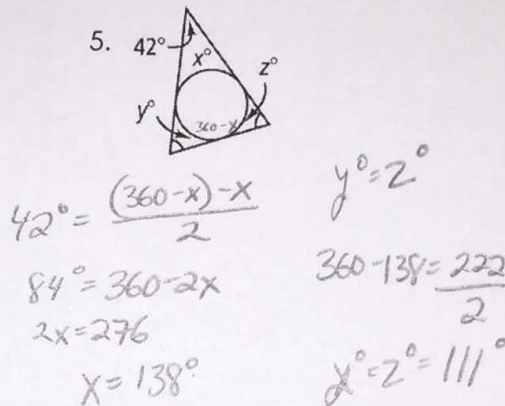 5. 42° x° z°
y° 360-x
42° = (360-x)-x / 2
84° = 360-2x
2x = 276
x = 138°
y° = z°
360-138 = 222 / 2
y° = z° = 111°